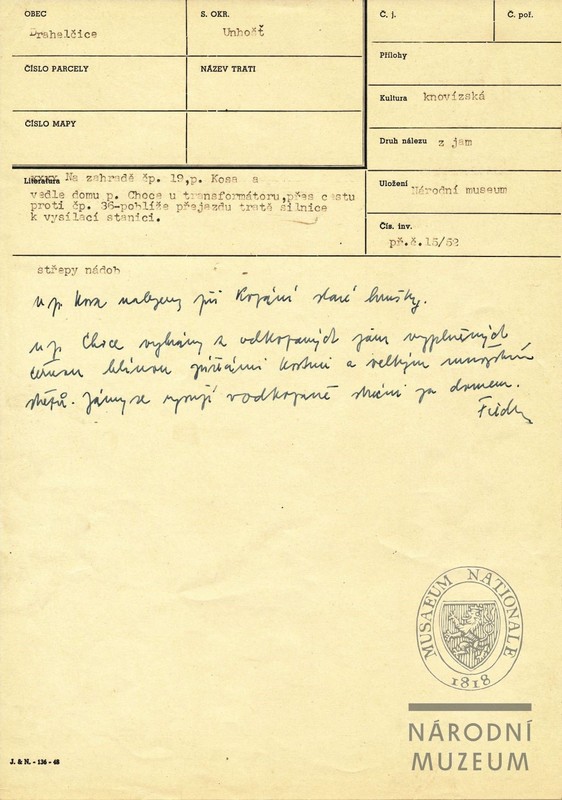 OBEC
Drahelčice
S. OKR.
Unhošť
Č. j.
Č. poř.
Přílohy
ČÍSLO PARCELY
NÁZEV TRATI
Kultura knovízská
ČÍSLO MAPY
Druh nálezu z jam
Uložení Národní museum
Čís. inv.
př.č.15/52
Literatura xxxx Na zahradě čp. 19,p. Kosa a
vedle domu p. Choce u transformátoru,přes cestu
proti čp. 36-poblíže přejezdu tratě silnice
k vysílací stanici.
střepy nádob
u p. Kosa nalezeny při kopání staré hrušky.
u p. Choce vybrány z odkopaných jam vyplněných
černou hlínou zvířecími kostmi a velkým množstvím
střepů. Jámy se rýsují v odkopané stráni za domem.
MUSAEUM NATIONALE
1818
NÁRODNÍ
MUZEUM
J. & N. - 136 - 48